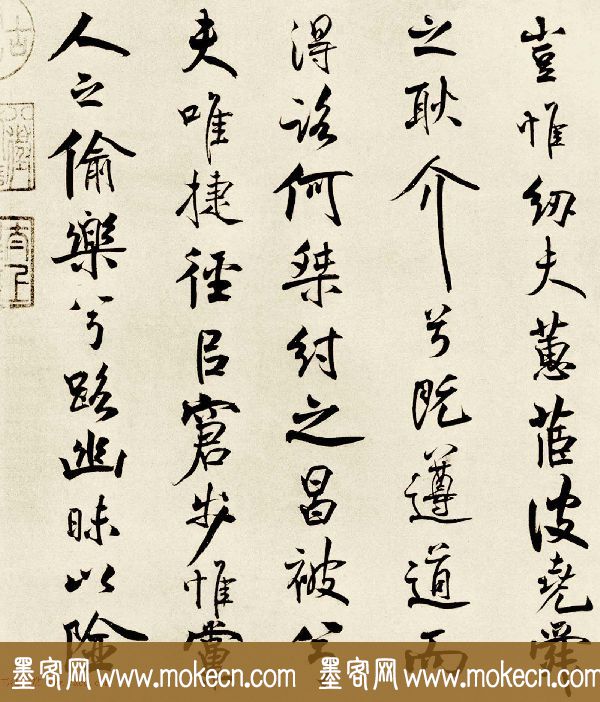 豈惟紉夫蕙茝彼堯舜
之耿介兮既遵道而
得路何桀紂之昌被兮
夫唯捷徑㠯窘步惟黨
人之偷樂兮路幽昧以險
墨客网 www.mokecn.com 墨客网 www.mokecn.com